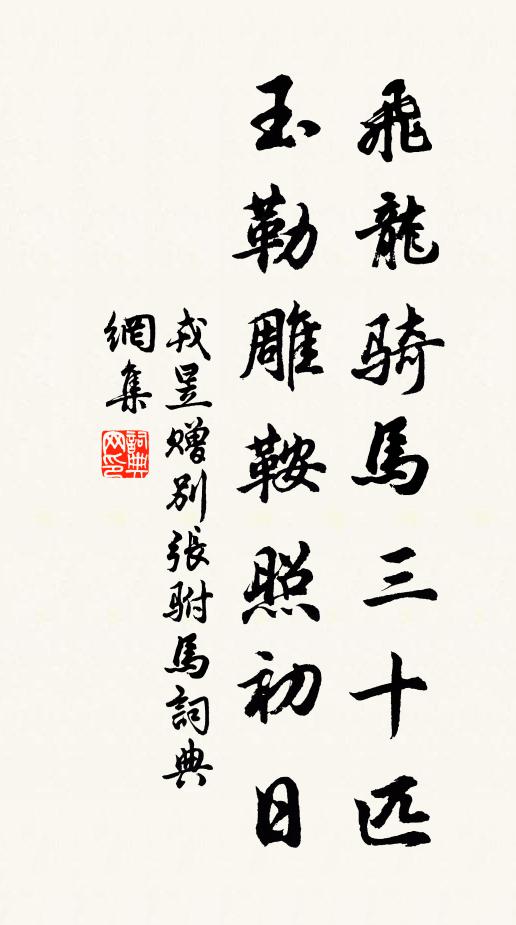 飛龍騎馬三十匹
玉勒雕鞍照初日
戎昱赠别張駙馬詞典
網集
詞典
网印